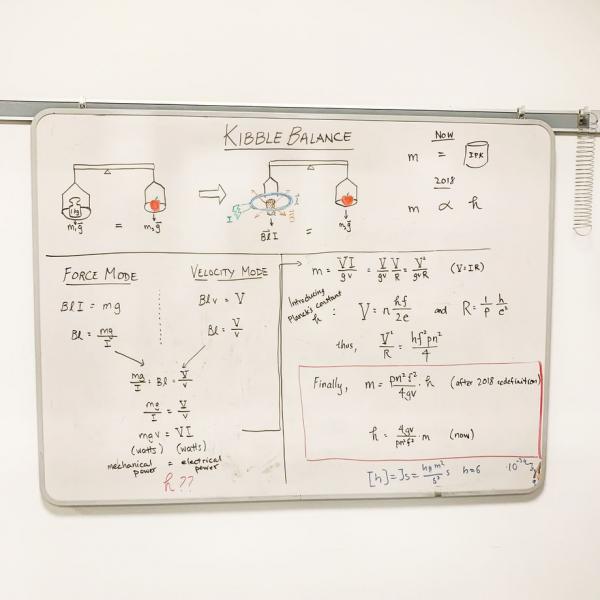 KIBBLE BALANCE
NOW
m = IPK
2018
m ∝ h
1 kg
m₁g⃗ = m₂g⃗
I
B⃗lI = m₂g⃗
FORCE MODE
BlI = mg
Bl = mg/I
VELOCITY MODE
Blv = V
Bl = V/v
mg/I = Bl = V/v
mg/I = V/v
mgv = VI
(watts) (watts)
mechanical power = electrical power
h??
m = VI/gv = V/gv V/R = V²/gvR (V=IR)
Introducing
Planck's constant
h :
V = n hf/2e and R = 1/p h/e²
thus, V²/R = hf²pn²/4
Finally, m = pn²f²/4gv · h (after 2018 redefinition)
h = 4gv/pn²f² · m (now)
[h] = Js = s h=6 ·10⁻³⁴